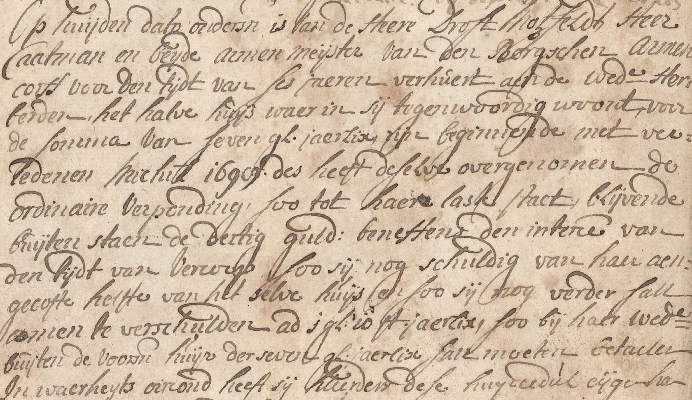 Op huijden dato ondersn is van de Here Drost Hotfeldt Heer
aatman en beijde armen meijster van den Borgschen Armen
corff voor den tijdt van ses jaeren verhuert aen de wede Her
berden, het halve huijs waer in sij tegenwoordig woont, voor
de somma van seven gl. jaerlix, sijn beginnende met ver=
ledenen Michili 1699. des heeft deselve overgenomen de
ordinaire Verponding, soo tot haere last staet, blijvende
buijten staen de dertig guld: beneffens den interes van
den tijdt van soo sij nog schuldig van haer aen=
gecofte helfte van het selve huijs en soo sij nog verder sall
comen te verschulden ad 1 gl: 10 st jaerlix, soo bij haer wede=
buijten de voorsn huijs der seven gl. jaerlix sall moeten betaelen
In waerheijts oirond heeft sij dese huyrcedul eijge ha